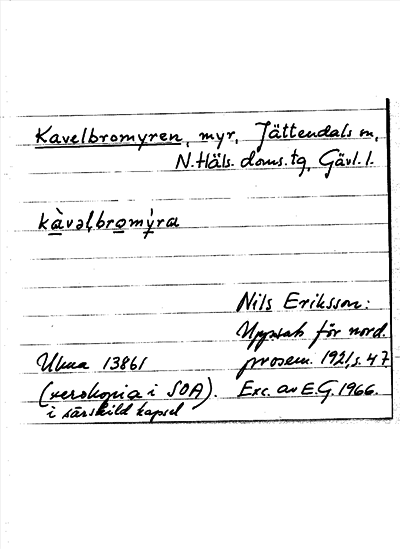 Kavelbromyren, myr, Jättendals sn,
N. Häls. doms.tg, Gävl. l.
kàvəl,bromỳra
Nils Eriksson:
Uppsats för nord.
Uluna 13861 prosem. 1921, s. 47
(xerokopia i SOA). Exc. av E.G. 1966.
i särskild kapsel